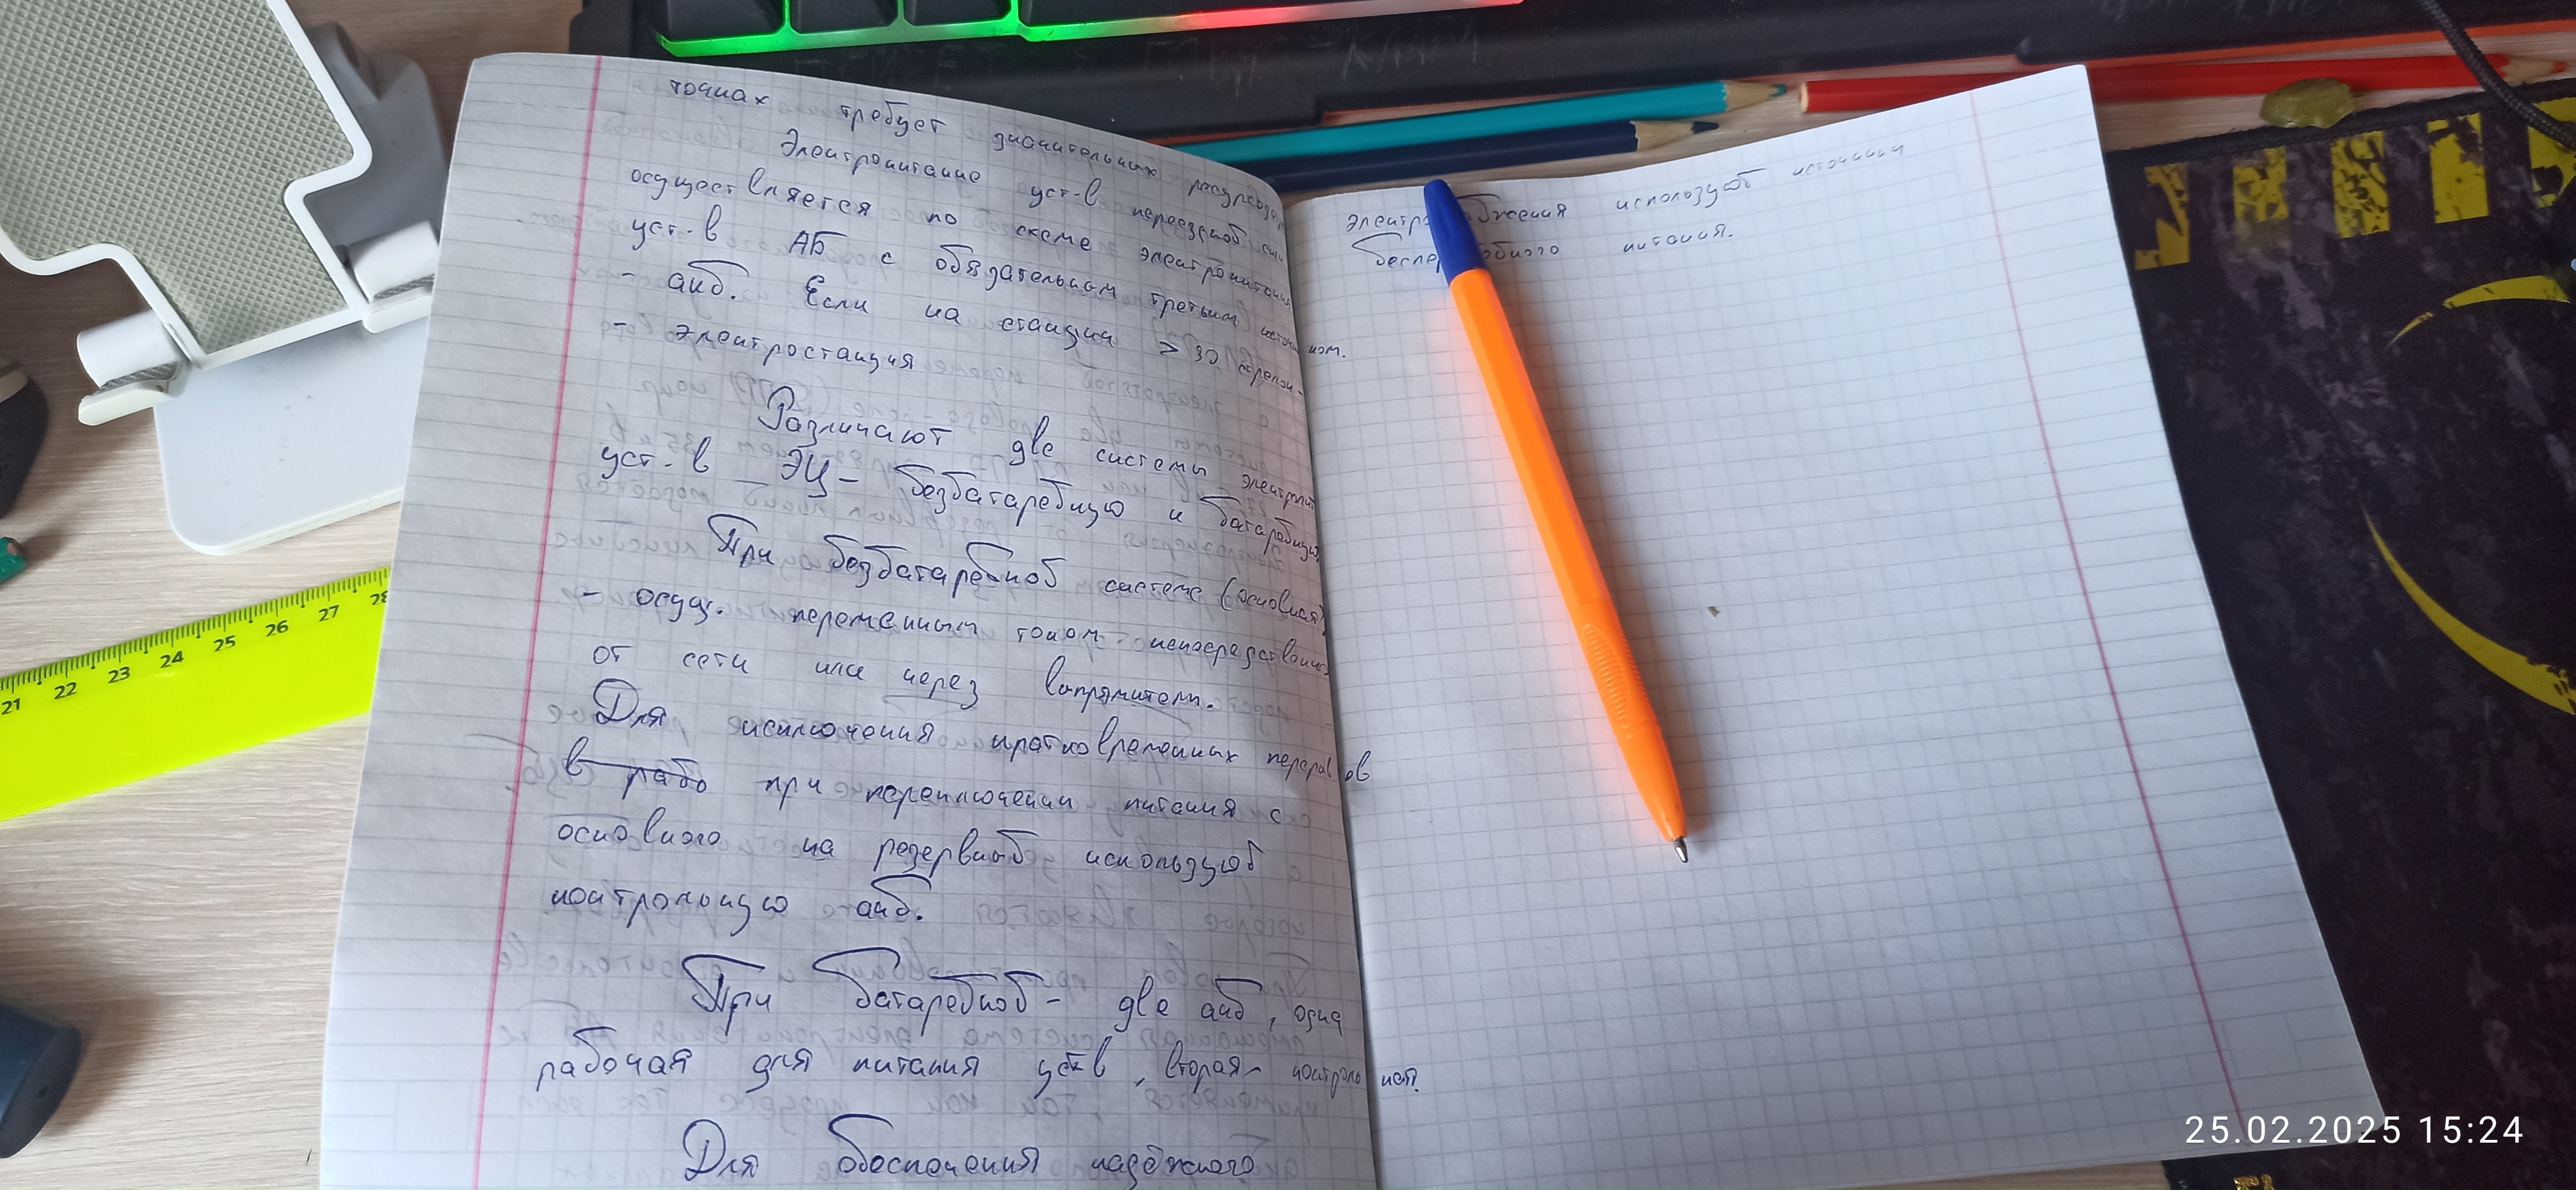 точках требует значительных расходов
Электропитание уст-в переездной сигн
осуществляется по схеме электропитания
уст-в АБ с обязательным третьим источником.
- акб. Если на станции > 30 стрелок -
- электростанция
Различают две системы электропит
уст-в ЭЦ - безбатарейную и батарейную.
При безбатарейной системе (основная)
- осущ. переменным током непосредственно
от сети или через выпрямители.
Для исключения кратковременных перерывов
в рабо при переключении питания с
основного на резервный использую
контрольную акб.
При батарейной - две акб, одна
рабочая для питания уст-в, вторая -
Для обеспечения надёжного
используют источники
питания.
21 22 23 24 25 26 27 28
25.02.2025 15:24